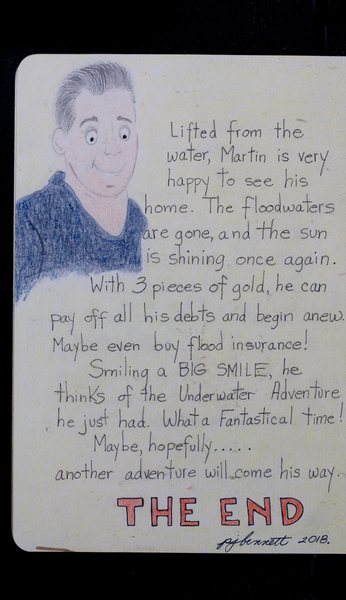 Lifted from the
water, Martin is very
happy to see his
home. The floodwaters
are gone, and the sun
is shining once again.
With 3 pieces of gold, he can
pay off all his debts and begin anew.
Maybe even buy flood insurance!
Smiling a BIG SMILE, he
thinks of the Underwater Adventure
he just had. What a Fantastical time!
Maybe, hopefully.....
another adventure will come his way.
THE END
pjbennett 2018.